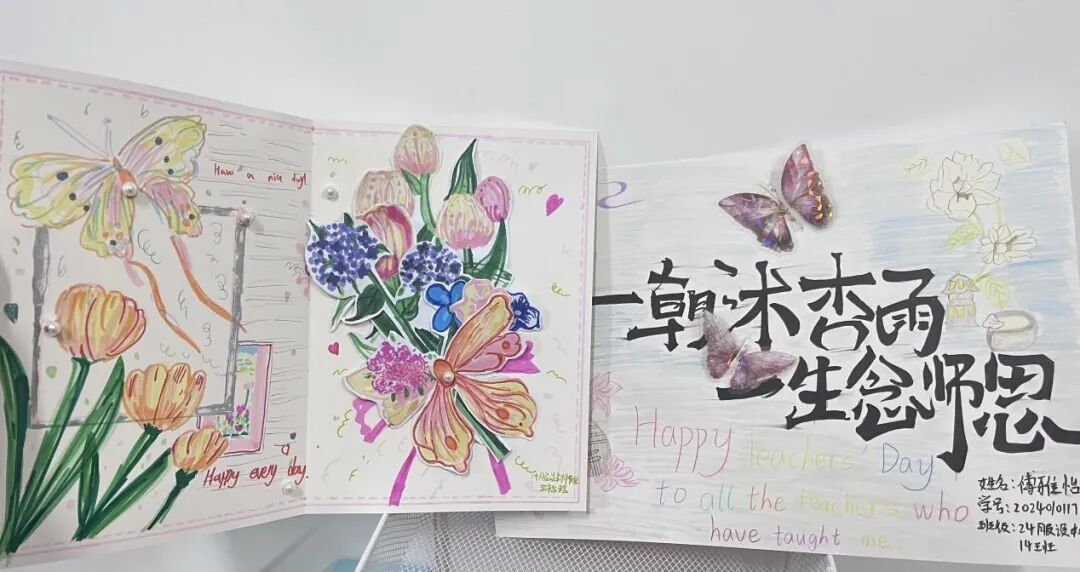 Have a nice day!
Happy every day.
一朝沐杏雨
一生念师恩
Happy teachers' Day
to all the teachers who
have taught me.
姓名:傅雅怡
学号:2024010117
班级:24服设本
14班